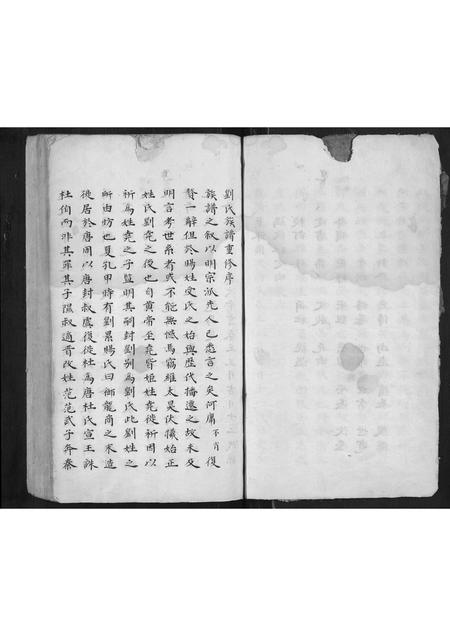 劉氏族譜重修序
族譜之叙以明宗派先人已悉言之矣何庸不肖復
贅一辭但於賜姓受氏之始與歷代播遷之故未及
明言考世系者或不能無憾焉竊維太昊伏犧始正
姓氏劉堯之後也自黄帝至堯皆姬姓堯徙祈因以
祈為姓堯之子監明其嗣封劉别為劉氏此劉姓之
所由坊也夏孔甲時有劉累賜氏曰御龍商之末造
徙居於唐周以唐封叔虞復徙杜為唐杜氏宣王誅
杜伯而非其罪其子隰叔適晋改姓范范武子奔秦